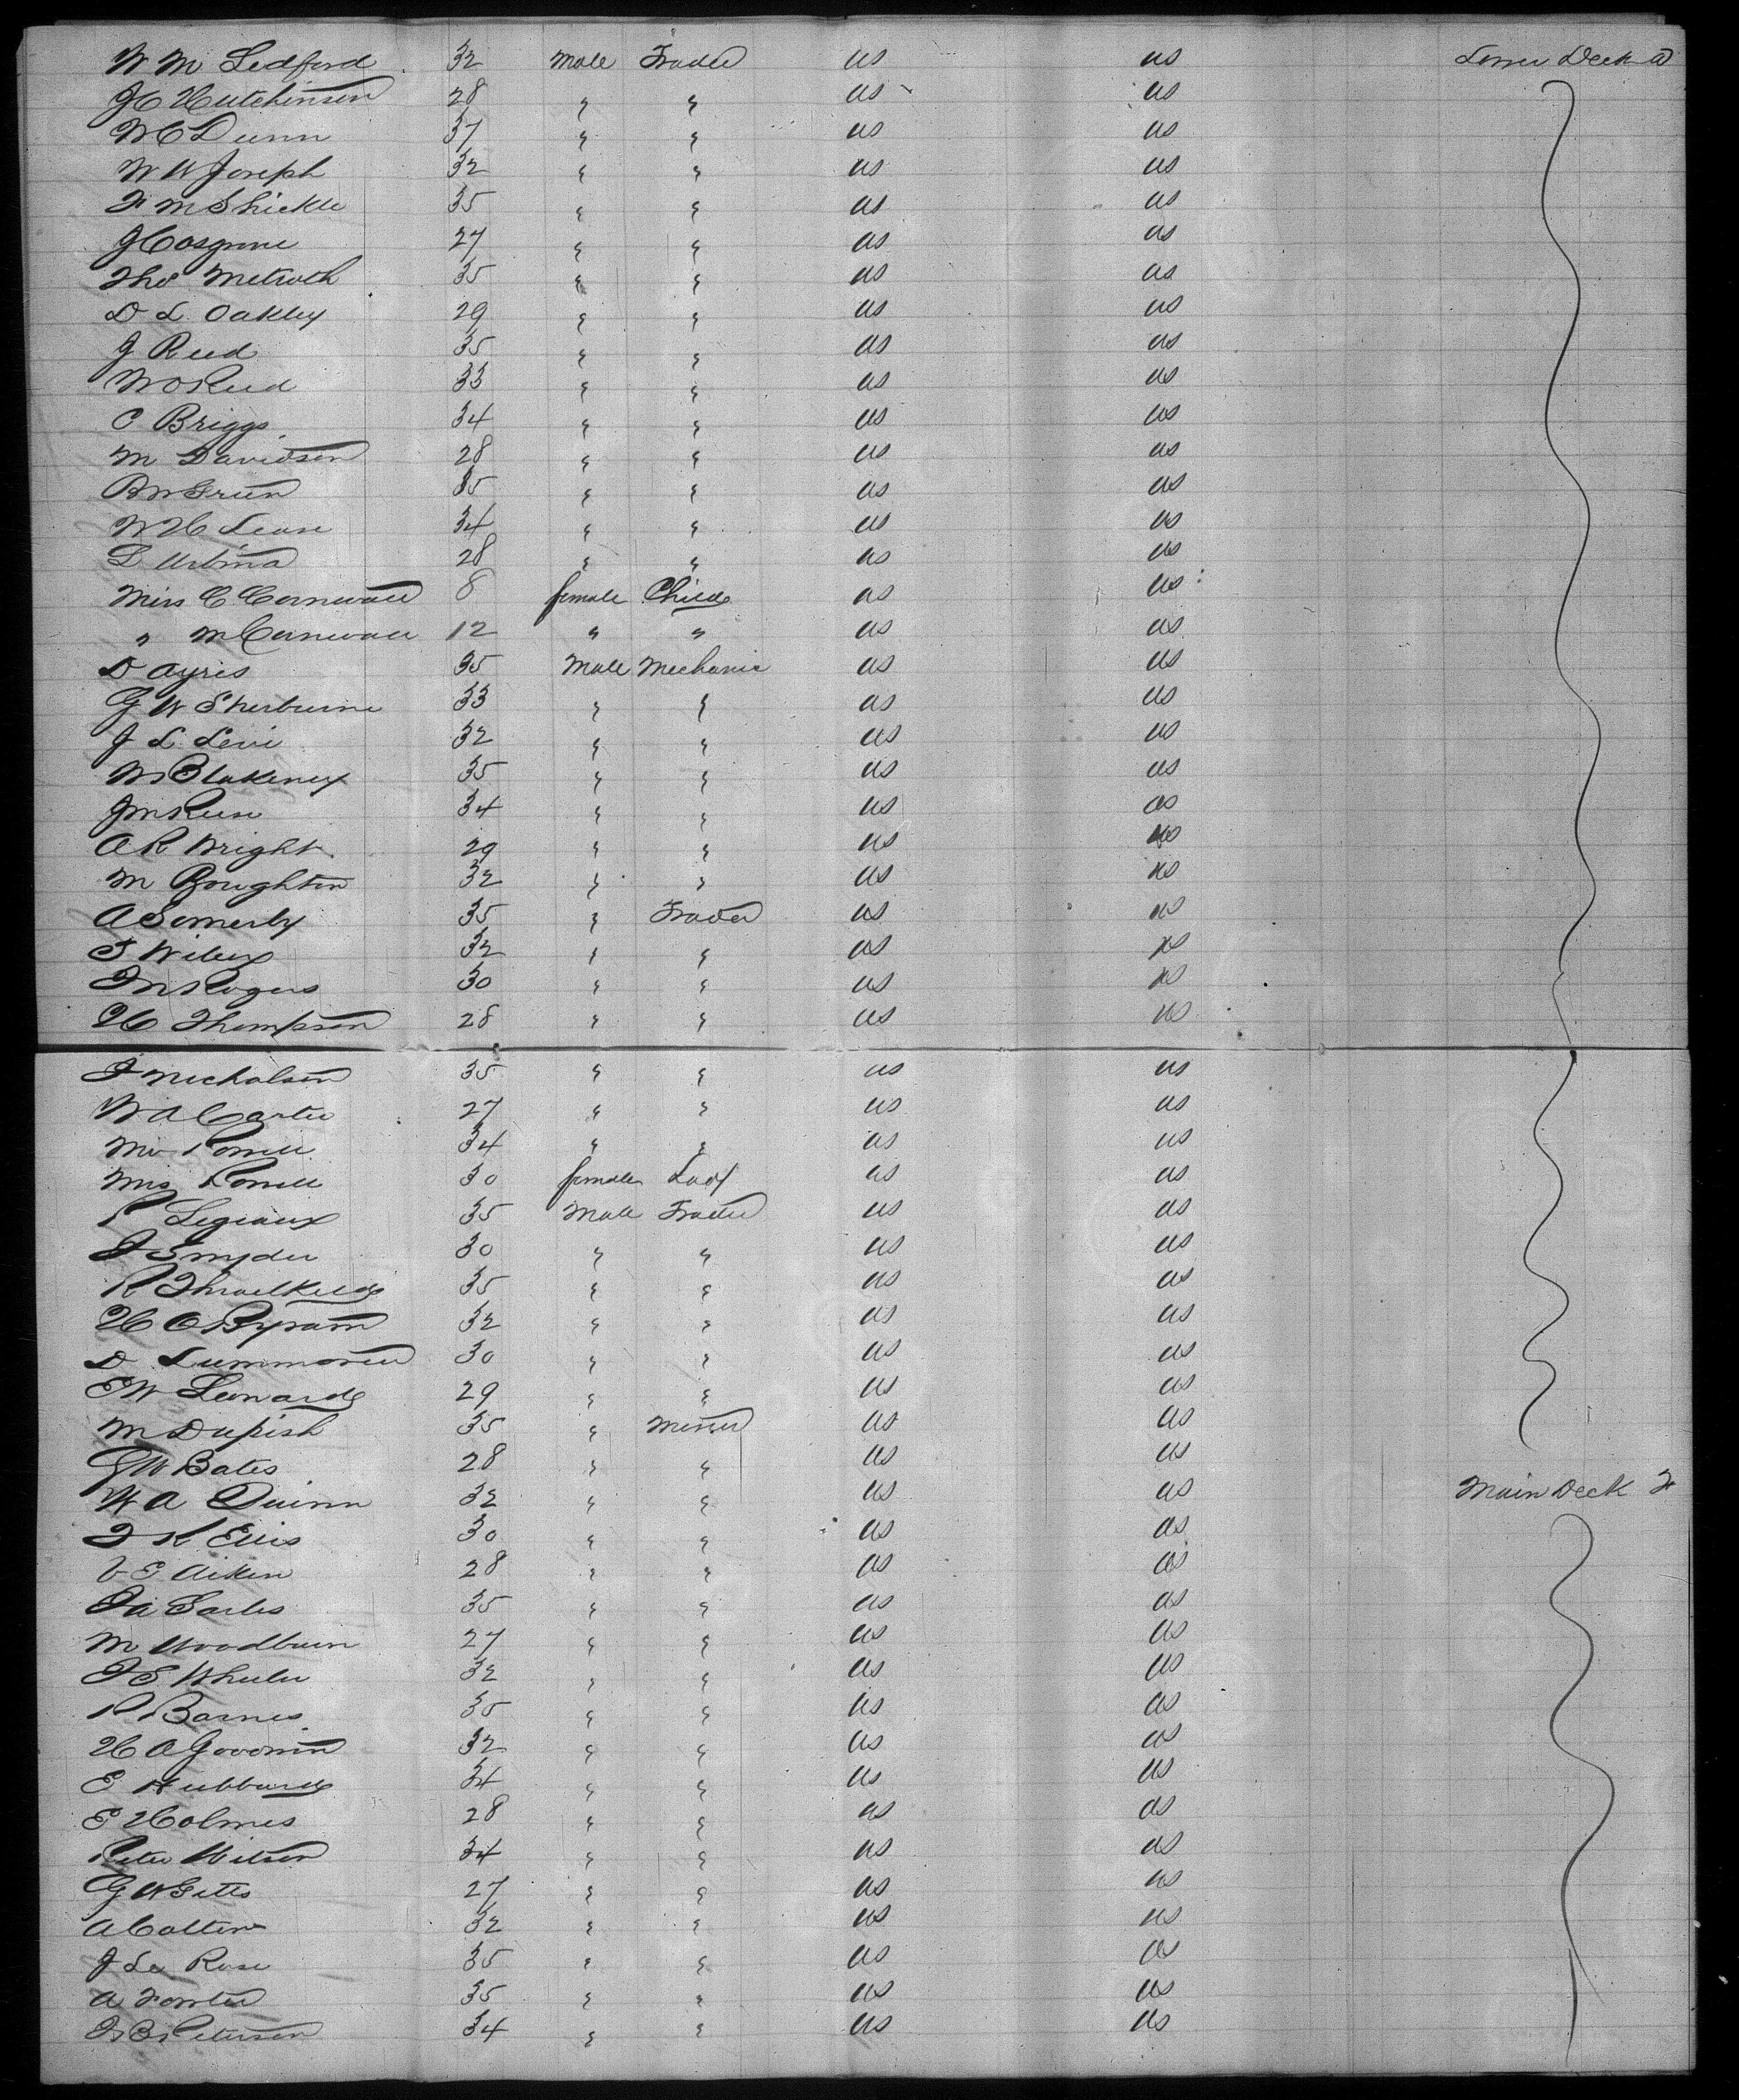 W M Ledford 32 Male Trader us us Lower Deck a
J C Hutchinson 28 " " us us
W C Dunn 37 " " us us
W W Joseph 32 " " us us
F M Shickle 35 " " us us
J Cosgrove 27 " " us us
Thos 35 " " us us
D L Oakley 29 " " us us
J Reed 35 " " us us
W O Reed 33 " " us us
C Briggs 34 " " us us
M Davidson 28 " " us us
35 " " us us
W H 34 " " us us
L Urbina 28 " " us us
Miss C Cornwall 8 female Child us us
" M Cornwall 12 " " us us
D Ayris 35 Male Mechanic us us
G W Sherburne 33 " " us us
J L Levi 32 " " us us
W Blakeney 35 " " us us
J M 34 " " us us
A R Wright 29 " " us us
M Boughton 32 " " us us
A Somerby 35 " Trader us us
32 " " us us
Rogers 30 " " us us
H Thompson 28 " " us us
J Nicholson 35 " " us us
W A Carter 27 " " us us
Mr 34 " " us us
Mrs 30 female Lady us us
35 Male Trader us us
J Snyder 30 " " us us
R Threlkeld 35 " " us us
H O Byram 32 " " us us
D 30 " " us us
E W Leonard 29 " " us us
M Dupish 35 " Miner us us
G W Bates 28 " " us us
W A Quinn 32 " " us us Main Deck F
J K Ellis 30 " " us us
V E Aiken 28 " " us us
35 " " us us
M Woodburn 27 " " us us
J E Wheeler 32 " " us us
R Barnes 35 " " us us
H A Goodwin 32 " " us us
E Hubbard 34 " " us us
E Holmes 28 " " us us
Peter Wilson 34 " " us us
G W 27 " " us us
A 32 " " us us
J La Rose 35 " " us us
A Forster 35 " " us us
Peterson 34 " " us us